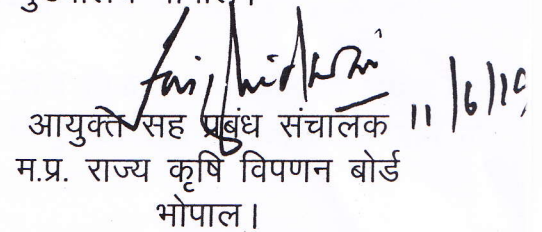 11/6/19
आयुक्त सह प्रबंध संचालक
म.प्र. राज्य कृषि विपणन बोर्ड
भोपाल।